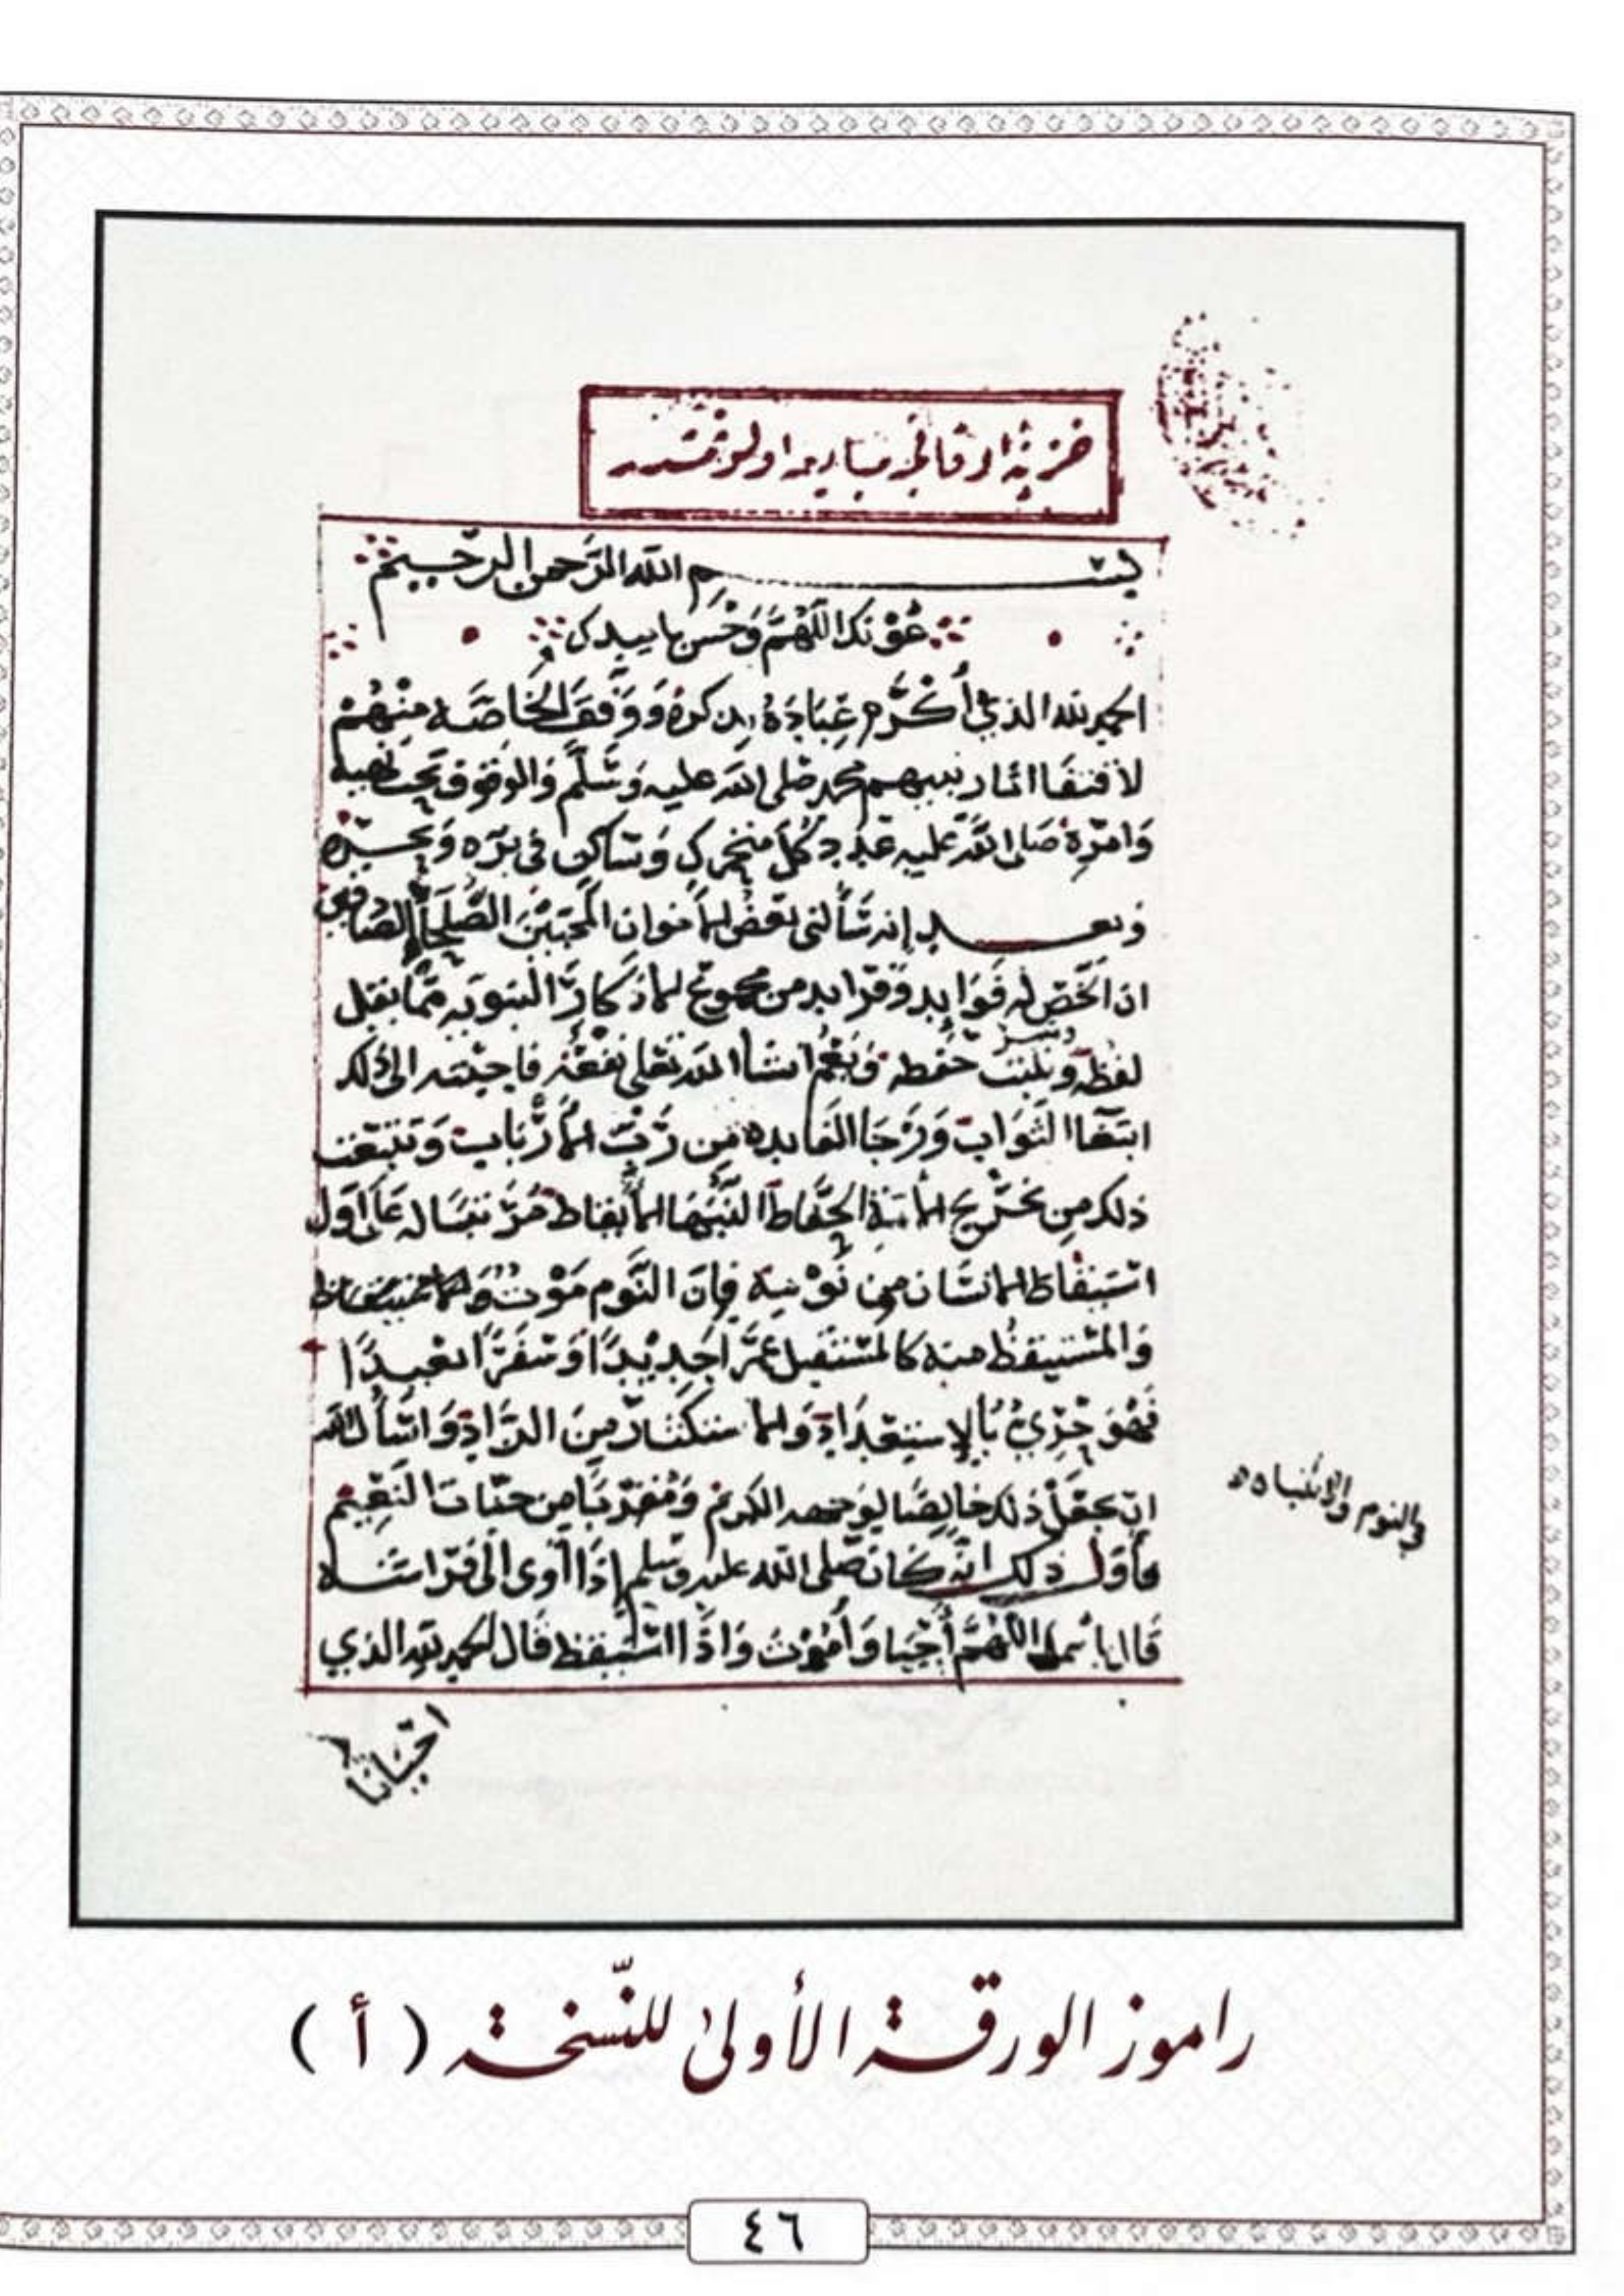 بسم الله الرحمن الرحيم
عونك اللهم وحسن تاييدك
الحمد لله الذي أكرم عباده بذكره ووفق الخاصة منهم
لاقتفا اثار نبيهم محمد صلى الله عليه وسلم والوقوف تحت نهيه
وامره صلى الله عليه عدد كل متحرك وساكن في بره وبحره
وبعد إنه سألني بعض الأخوان المحبين الصلحا الصادقين
ان الخص له فوايد وفرايد من مجموع الأذكار النبوية مما يقل
لفظه ويثبت حفظه ويعم انشا الله تعلى نفعه فاجبته الى ذلك
ابتغا الثواب ورجا الفايده من رب الأرباب وتتبعت
ذلك من تخريج الأئمة الحفاظ النبها الأيقاظ على اول
استيقاظ الانسان من نومه فإن النوم موت
والمستيقظ منه كالمستقبل عمرا جديدا وسفرا بعيدا
فهو حري بالإستعداد والاستكثار من الزاد واسأل الله
ان يجعل ذلك خالصا لوجهه الكريم ومقربا من جنات النعيم
فأول ذلك انه كان صلى الله عليه وسلم إذا أوى الى فراشه
قال باسمك اللهم أحيا وأموت واذا استيقظ قال الحمد لله الذي
احيانا
في النوم والانتباه
راموز الورقة الأولى للنّسخة (أ)
٤٦